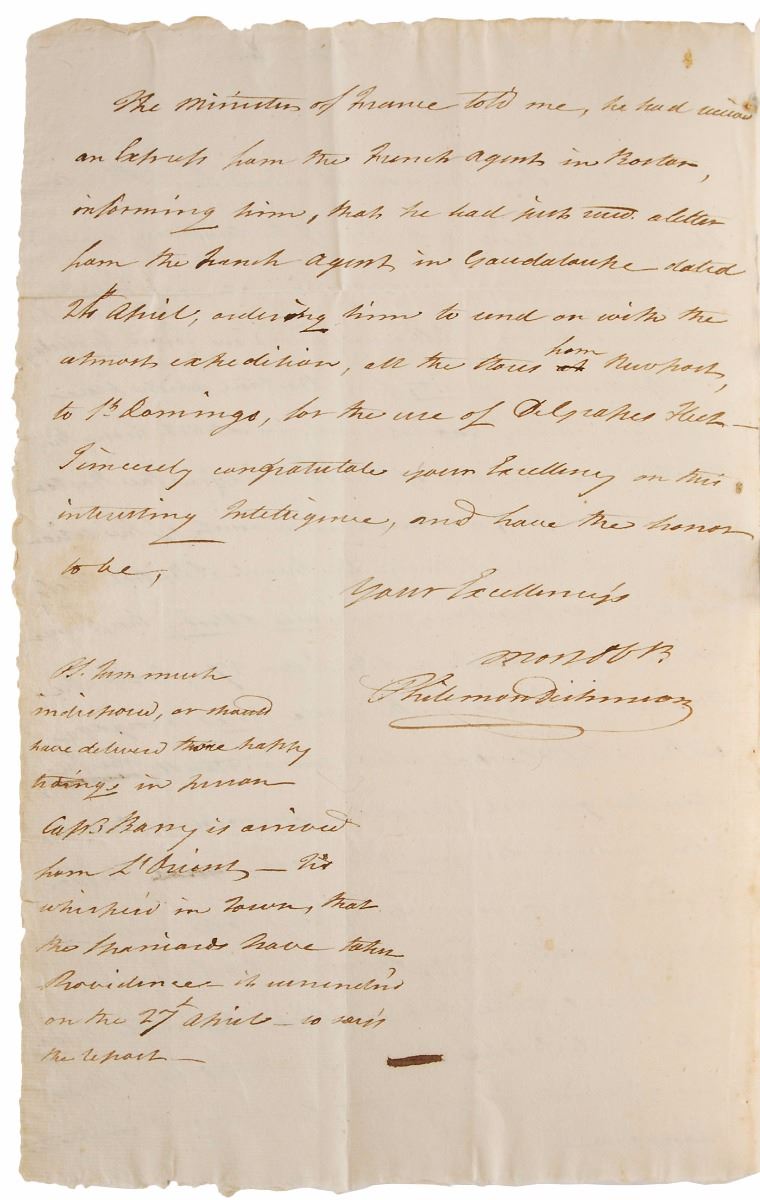 The Minister of France told me, he had receiv'd
an Express from the French Agent in Boston,
informing him, that he had just recd. a letter
from the French Agent in Gaudaloupe dated
24 April, ordering him to send on with the
utmost expedition, all the Stores at from Newport,
to St. Domingo, for the use of DeGrasses Fleet—
I sincerely congratulate your Excellency on this
interesting Intelligence, and have the honor
to be,
Your Excellency's
most Ob St
Philemon Dickinson
Ps. I am much
indisposed, or should
have delivered those happy
tidings in person
Capt. Barry is arrived
from L'Orient— Tis
whisper'd in Town, that
the Spaniards have taken
Providence— it surrender'd
on the 27t April— so says
the report—